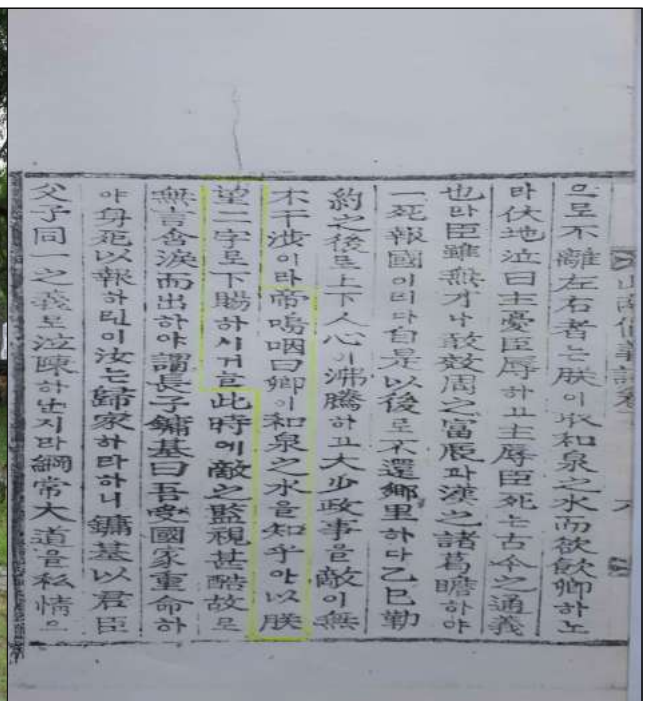 山南倡義誌卷
六
으로不離左右者는朕이取和泉之水而欲飮卿하노
라伏地泣曰主憂臣辱하고主辱臣死는古今之通義
也라臣雖無才나敢效周之富辰과漢之諸葛瞻하야
一死報國이리다自是以後로不還鄕里하다乙巳勒
約之後로上下人心이沸騰하고大少政事을敵이無
不干涉이라帝嗚咽曰卿이和泉之水을知乎아以朕
望二字로下賜하시거늘此時에敵之監視甚酷故로
無言含淚而出하야謂長子鏞基曰吾受國家重命하
야身死以報하린이汝는歸家하라하니鏞基以君臣
父子同一之義로泣陳하난지라綱常大道을私情으